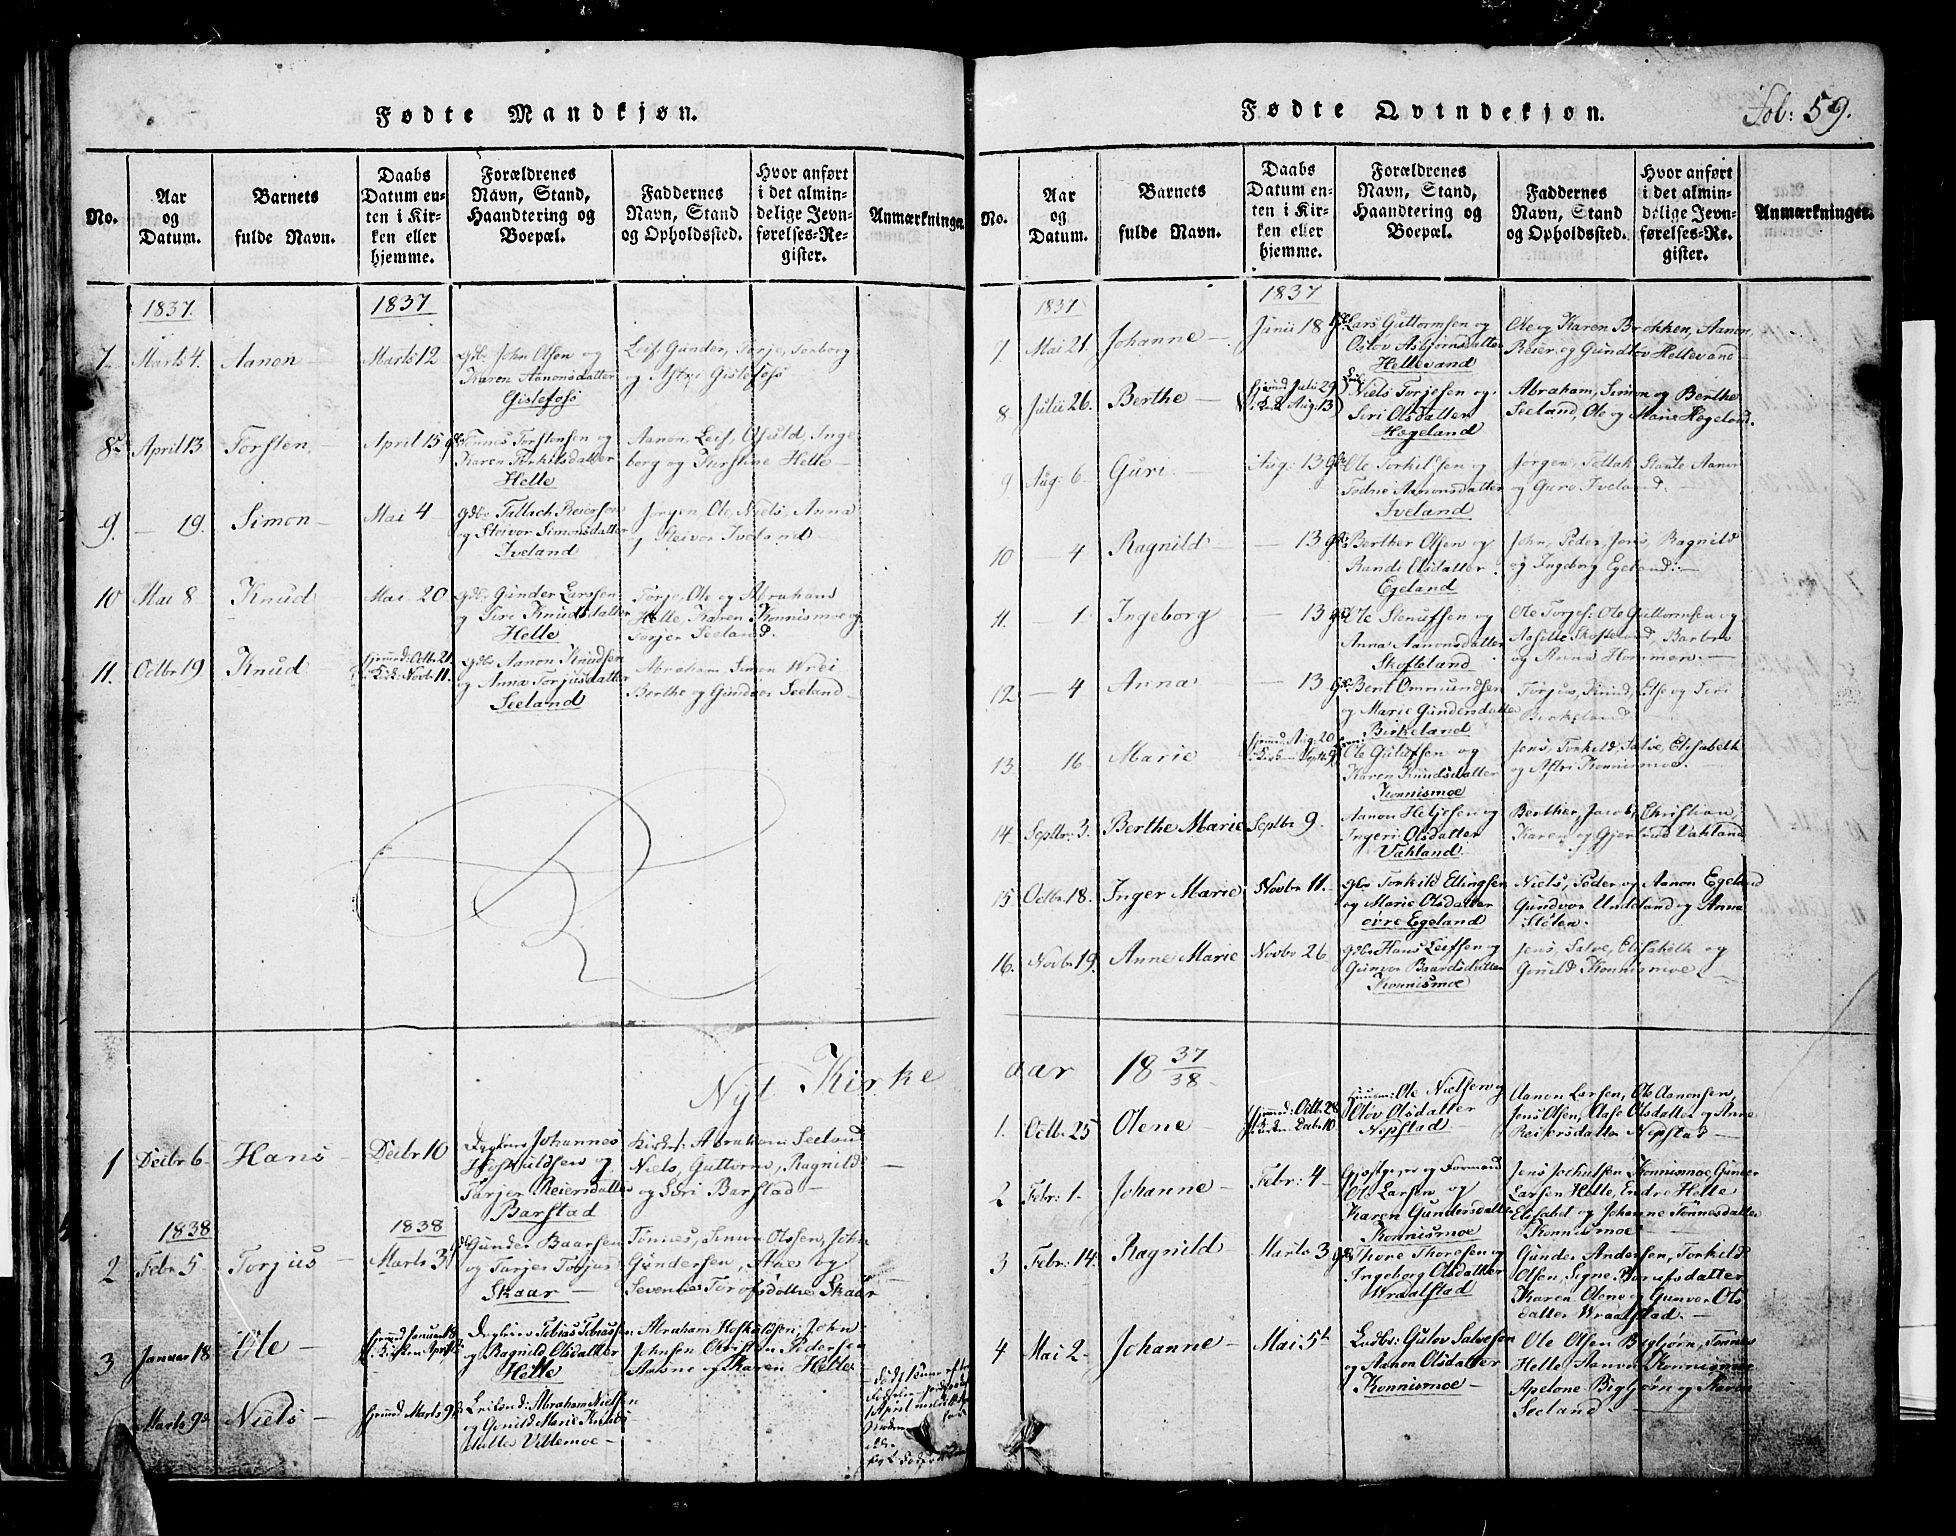 Fødte Mandkjøn.
No.
Aar
og
Datum.
Barnets
fulde Navn.
Daabs
Datum en-
ten i Kir-
ken eller
hjemme.
Forældrenes
Navn, Stand,
Haandtering og
Boepæl.
Faddernes
Navn, Stand
og Opholdssted.
Hvor anført
i det almin-
delige Jevn-
førelses-Re-
gister.
Anmærkninger.
1837.
1837
7 Marts 4. Aanon – Marts 12 gdbr John Olsen og
Karen Aanonsdatter
Gislefoss
Leif, Gunder, Torje, Torborg
og Astri Gislefoss
8 April 13 Torsten. April 15 Tønnes Torstensen og
Karen Torkilsdatter
Helle
Aanon, Leif, Osuld, Inge
borg og Kirstine Helle –
9. – 19. Simon – Mai 4 gdbr Tallach Reiersen
og Steivor Simonsdatter
Iveland
Jørgen Ole, Niels, Anna
og Steivor Iveland –
10 Mai 8 – Knud Mai 20 gdbr Gunder Larssen
og Siri Knudsdatter
Helle
Torje, Ole og Abraham
Helle, Karen Konnismoe og
Torjer Seeland.
11. Octbr 19 Knud hjemd: Octbr 21
Kirk: Novbr 11.
gdbr Aanon Knudsen
og Anna Torjusdatter
Seeland
Abraham Simon
Berthe og Gundvor Seeland –
Nyt Kirke
1 Decbr 6 – Hans – Decbr 10 Johannes
og
Tarjer Reiersdatter
Barstad
Abraham Seeland
Niels, Guttorm, Ragnild
og Siri Barstad –
1838
1838
2 Febr 5 Torjus – Marts 3 Gunder Baarsen
og Tarjer Torjus
Skaar –
Tønnes, Simon Olssen, John
Gundersen, og
Skaar
3 Januar 18 Ole – hjemd Januar 18
Kirken April
Tobias Tobiassen
og Ragnild Olsdatter
Helle
Abraham Hoskuldsen, John
Johnsen Christian Pedersen
og Karen Helle
Marts 9de Niels – hjemd Marts 9de Abraham Nielsen
og Gunild Marie Knuds
datter Vettemoe –
Fødte Qvindekjøn.
Fol: 59.
No.
Aar
og
Datum.
Barnets
fulde Navn.
Daabs
Datum en-
ten i Kir-
ken eller
hjemme.
Forældrenes
Navn, Stand,
Haandtering og
Boepæl.
Faddernes
Navn, Stand
og Opholdssted.
Hvor anført
i det almin-
delige Jevn-
førelses-Re-
gister.
Anmærkninger.
1837
1837
7 Mai 21. Johanne – Junii 18 Lars Guttormsen og
Oslov Asbjørnsdatter
Hellevand
Ole og Karen Brokken, Aanon
Reier og Gundlov Hellevand –
8 Julii 26. Berthe – hjemd Julii 29
Kirk Aug. 13
Niels Torjesen og
Siri Olsdatter
Høgeland
Abraham, Simon og Berthe
Seeland, Ole og Marie Høgeland.
9 Aug: 6 – Guri – Aug: 13 Ole Torkildsen og
Todne Aanonsdatter
Iveland
Jørgen, Tellak Aanon
og Gure Iveland. –
10 – 4 Ragnild – 13 Berther Olsen og
Randi Olsdatter
Egeland
John, Peder, Jens, Ragnild
og Ingeborg Egeland. –
11. – 1. Ingeborg 13 Ole og
Anna Aanonsdatter
Skofteland
Ole Torjes: Ole Guttormsen og
Aasille Skofteland, Barbro
og Anna Hommen. –
12 – 4 Anna – 13 Bent Ommundsen
og Marie Gundersdatter
Birkeland
Torjus, Knud, Else og Siri
Birkeland –
13 16 Marie hjemd: Aug: 20
Ole og
Karen Knudsdatter
Konnismoe
Jens, Torkild, Salve, Elisabeth
og Astri Konnismoe.
14 Septbr: 3. Berthe Marie Septbr 9. Aanon Heljesen og
Ingeri Olsdatter
Vahland.
Berther, Jacob, Christian,
Karen og Gjertrud Vahland
15 Octbr 18. Inger Marie Novbr 11. gdbr Torkild Ellingsen
og Marie Olsdatter
øvre Egeland
Niels, Peder og Aanon Egeland
Gundvor Uddland og Anna
Stølen.
16. Novbr 19. Anne Marie Novbr 26 gdbr Hans Leifsen og
Gunvor Baardsdatter
Konnismoe
Jens, Salve, Elisabeth og
Gunild Konnismoe –
aar 18 37/38
1. Octbr 25 Olene – hjemd: Octbr 28
Kirken Decbr 10
Huusm: Ole Nielsen og
Olov Olsdatter
Nepstad –
Aanon Larsen, Ole Aanonsen,
Jens Olsen, Aase Olsdatter og Anne
Reiersdatter Nepstad –
2 Febr: 1. Johanne – Febr: 4 Gjestgiver og Formand
Ole Larsen og
Karen Gundersdatter
Konnismoe
Jens Konnismoe Gunder
Larsen Helle, Endre Helle
Elisabet og Johanne Tønnesdatter
Konnismoe –
3 Febr: 14. Ragnild Marts 3 Thore Thoresen og
Ingeborg Olsdatter
Wraalstad
Gunder Andersen, Torkild
Olsen, Signe
Karen Olene og Gunvor Ols
datter Wraalstad.
4 Mai 2 – Johanne – Mai 5te Gulov Salvesen
og Aanon Olsdatter
Konnismoe –
Ole Olsen Bigbjørn, Tønnes
Helle Aanon Konnismoe
Apelone Bigbjørn og Karen
Seeland –